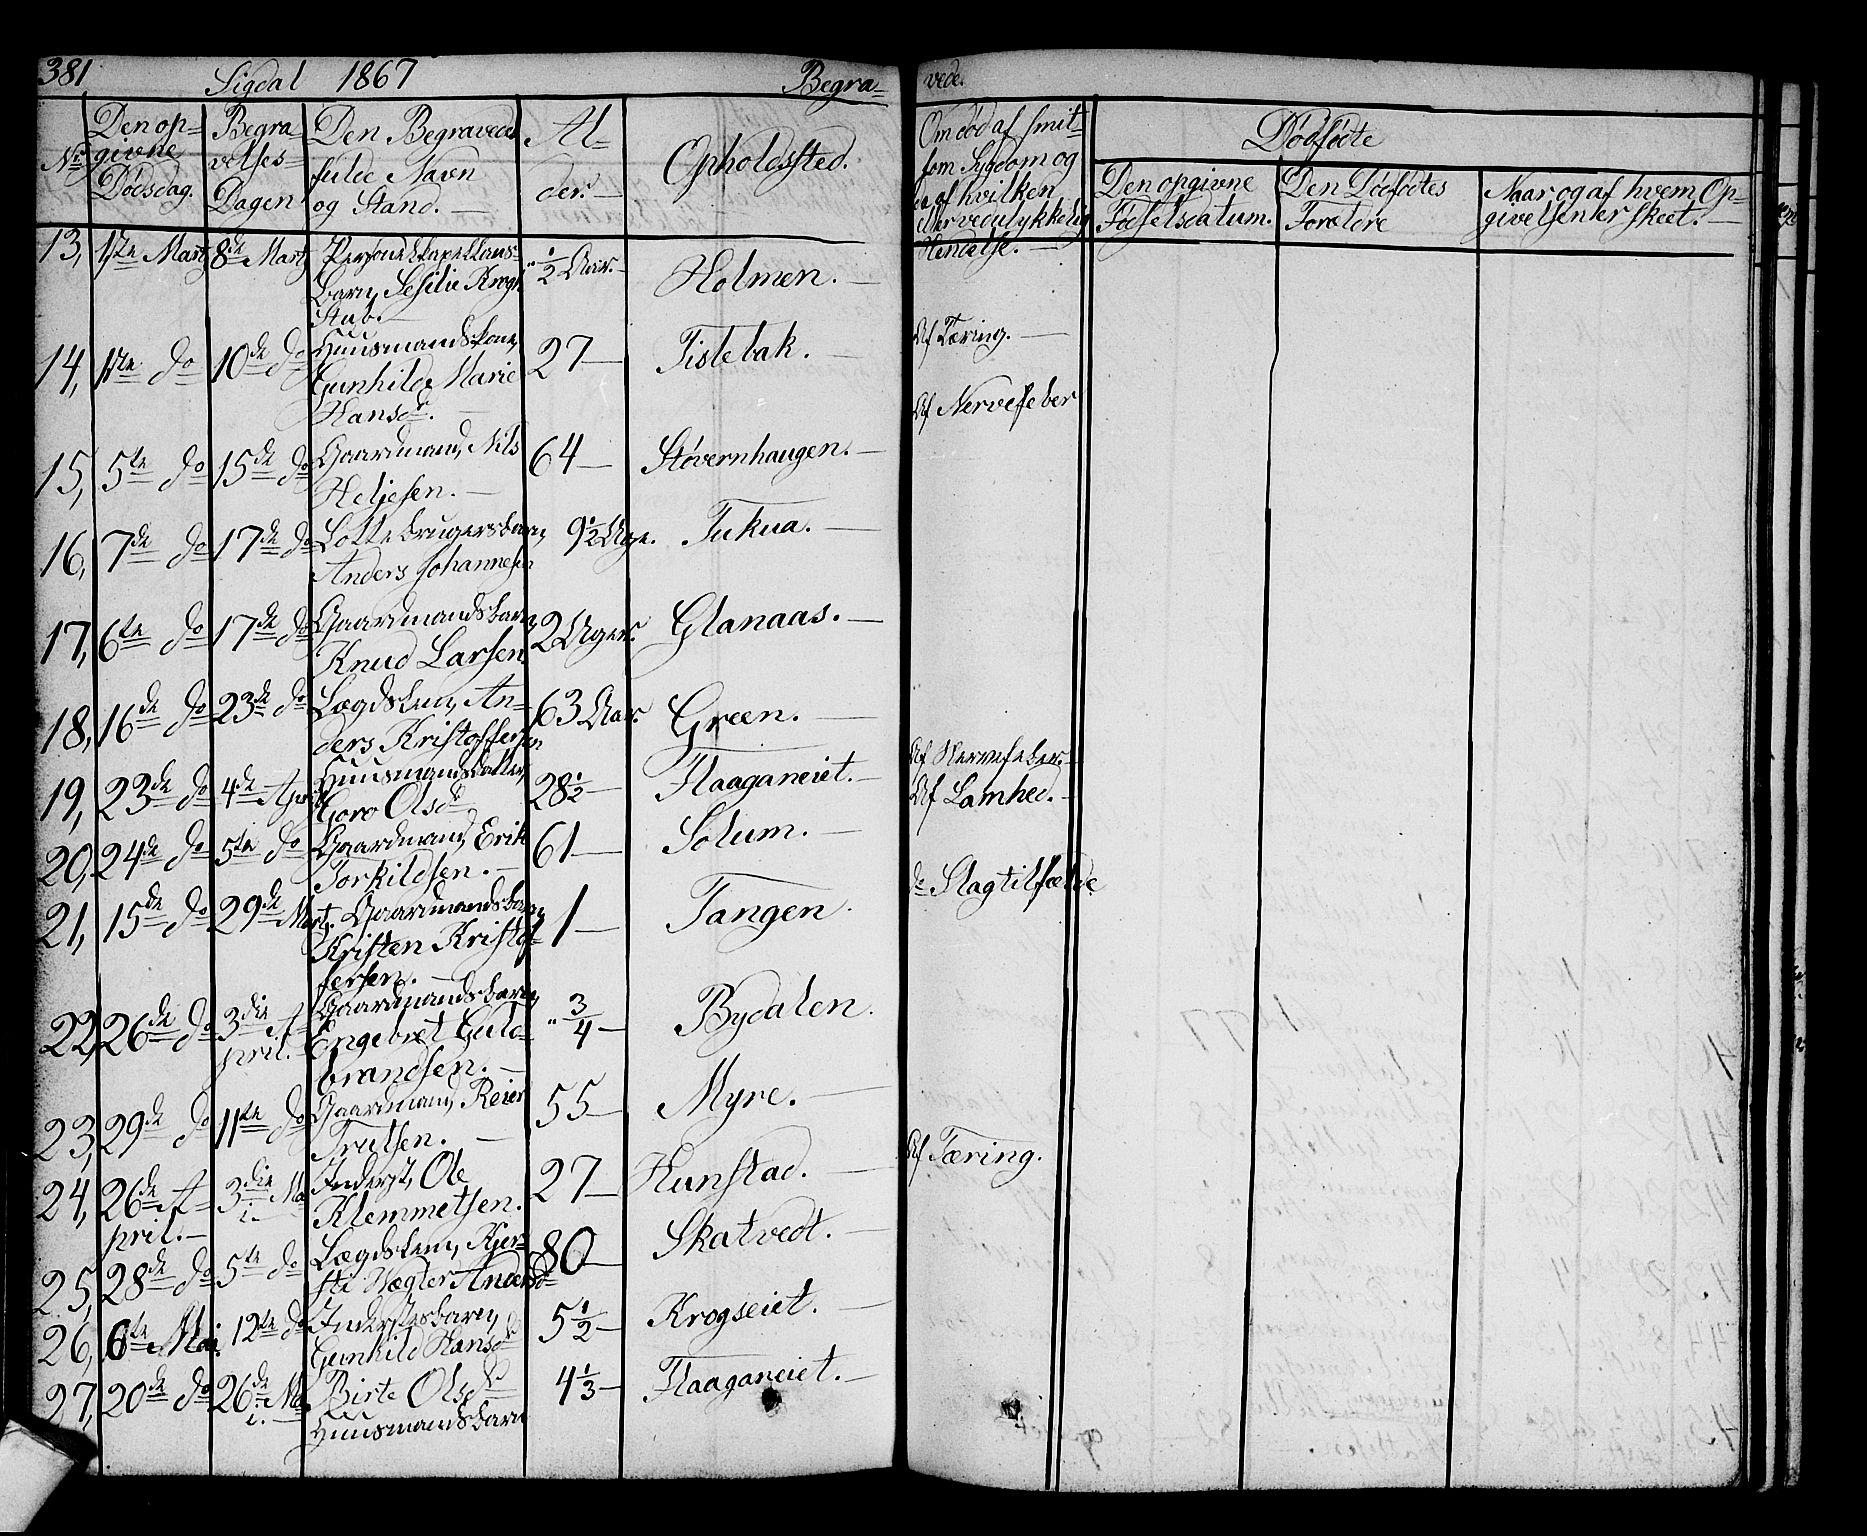 381 Sigdal 1867 Begra=
vede.
No. Den op=
givne
Dødsdag.
Begra
velses=
Dagen
Den Begravedes
fulde Navn
og Stand. —
Al=
der. —
Opholdssted.
Om død af smit=
som Sygdom og
da af hvilken
eller ved ulykkelig
Hendelse. —
Dødfødte
Den opgivne
Fødselsdatum.
Den Dødfødtes
Forældre
Naar og af hvem Op=
givelsen er skeet. —
13, 1ste Marts 8de Marts Personelkapellans=
barn, Sesilie Krogh
Stub. — " 1/2 Aar. — Holmen. —
14, 1ste do 10de do Huusmandskone,
Gunhilde Marie
Hansdr. — 27 — Tistebak. — Af Tæring. —
15, 5te do 15de do Gaardmand, Nils
Heljesen. — 64 — Støvernhaugen. — Af Nervefeber
16, 7de do 17de do Lottebrugersbarn,
Anders Johannesen 9 1/2 Uge. Tukua. —
17, 6te do 17de do Gaardmandsbarn,
Knud Larsen 2 Uger. Glanaas. —
18, 16de do 23de do Lægdslem, An=
ders Kristoffersen 63 Aar. Green. —
19, 23de do 4de April Huusmandsdatter,
Goro Olsdr 28 1/2 — Flaaganeiet. — Af Nervefeber. —
20, 24de do 5te do Gaardmand, Erik
Torkildsen. — 61 — Solum. — Af Lamhed. —
21, 15de do 29de Marts. Gaardmandsbarn,
Kristen Kristof=
fersen. — 1 — Tangen. do Slagtilfælde
22, 26de do 3die A=
pril. Gaardmandsbarn,
Engebret Guld=
brandsen. — " 3/4 — Bydalen.
23, 29de do 11te do Gaardmand, Reier
Trulsen. — 55 — Myre. —
24, 26de A=
pril. — 3die Ma
i. — Inderst, Ole
Klemmetsen. 27 — Hunstad. — Af Tæring.
25, 28de do 5te do Lægdslem, Kjer=
sti Vægler Andersdr 80 — Skatvedt. —
26, 6te Mai 12te do Inderstesbarn,
Gunhild Hansdr 5 1/2 — Krogseiet. —
27, 20de do 26de Ma
i. — Birte Olsdr
Huusmandsbarn 4 1/3 — Flaaganeiet. —